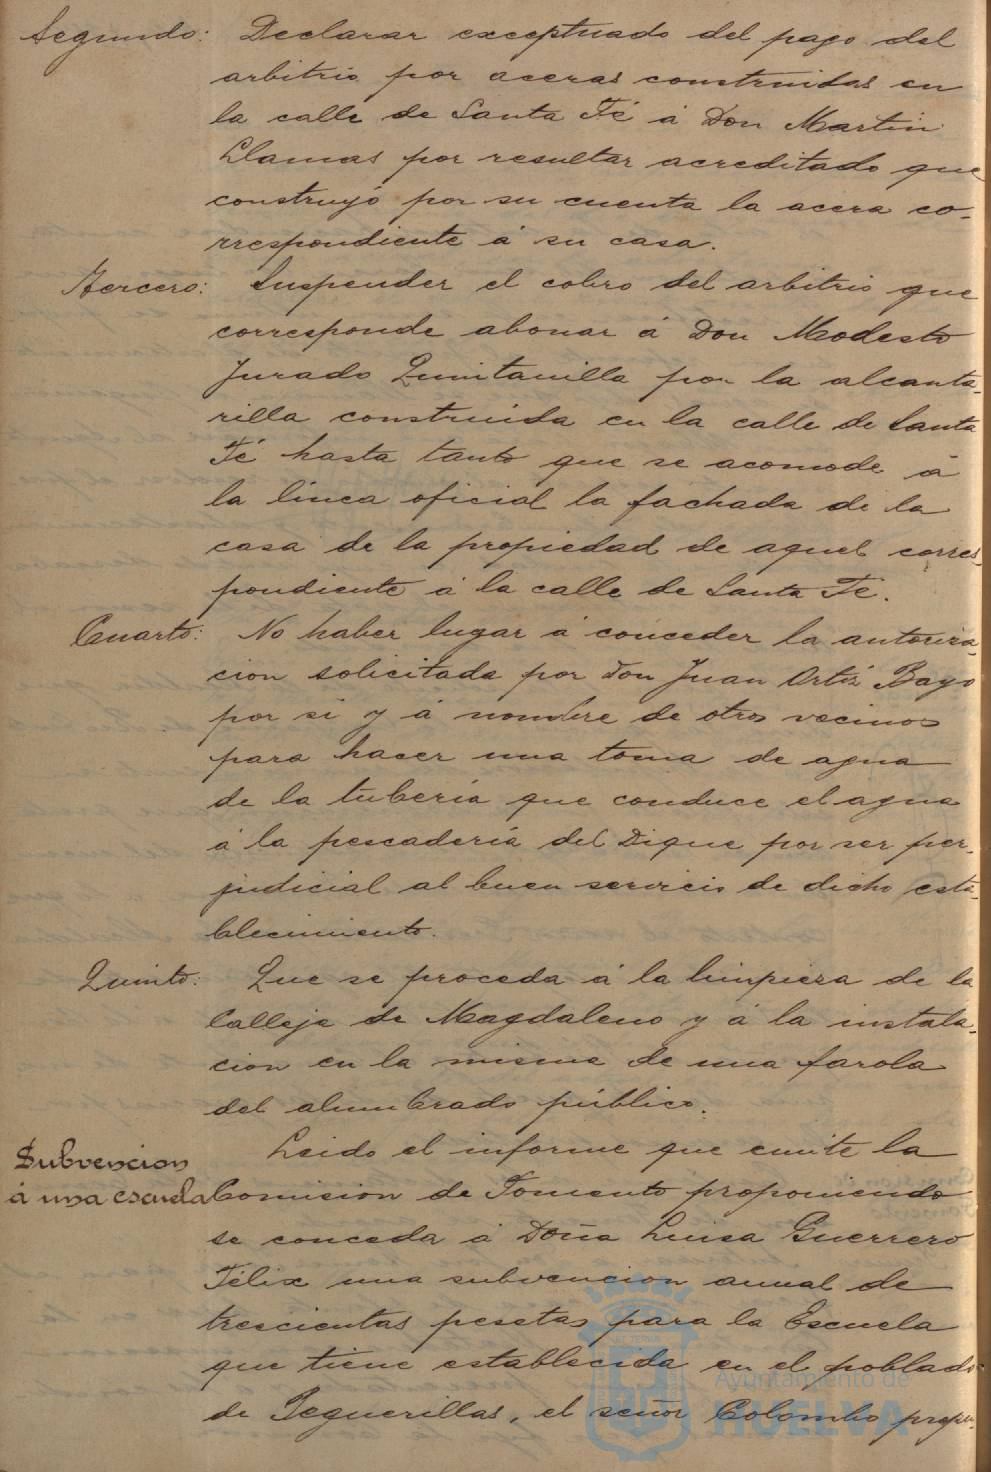 Segundo: Declarar exceptuado del pago del
arbitrio por aceras construidas en
la calle de Santa Fé á Don Martin
Llamas por resultar acreditado que
construyó por su cuenta la acera co-
rrespondiente á su casa.
Tercero: Suspender el cobro del arbitrio que
corresponde abonar á Don Modesto
Jurado Quintanilla por la alcanta-
rilla construida en la calle de Santa
Fé hasta tanto que se acomode á
la linea oficial la fachada de la
casa de la propiedad de aquel corres-
pondiente á la calle de Santa Fé.
Cuarto: No haber lugar á conceder la autoriza-
cion solicitada por Don Juan Ortiz Bayo
por si y á nombre de otros vecinos
para hacer una toma de agua
de la tubería que conduce el agua
á la pescadería del Dique por ser per-
judicial al buen servicio de dicho esta-
blecimiento.
Quinto: Que se proceda á la limpieza de la
Calleja de Magdaleno y á la instala-
cion en la misma de una farola
del alumbrado público.
Subvencion
á una escuela
Leido el informe que emite la
Comision de Fomento proponiendo
se conceda á Doña Luisa Guerrero
Félix una subvencion anual de
trescientas pesetas para la Escuela
que tiene establecida en el poblado
de Peguerillas, el señor Colombo propu-
Ayuntamiento de
HUELVA